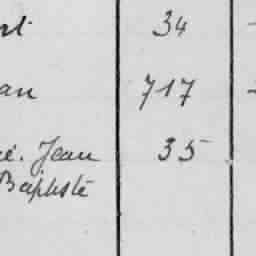 34
an 717
Jean 35
Baptiste